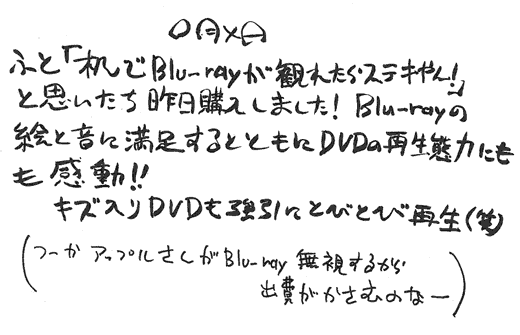 ○月×日
ふと「机でBlu-rayが観れたらステキやん!」
と思いたち昨日購入しました! Blu-rayの
絵と音に満足するとともにDVDの再生能力にも
も感動!!
キズ入りDVDも強引にとびとび再生(笑)
(つーかアップルさんがBlu-ray無視するから
出費がかさむのなー)